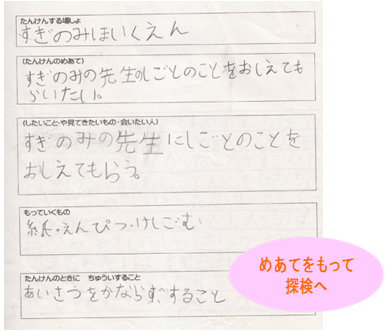 たんけんする場しょ
すぎのみほいくえん
(たんけんのめあて)
すぎのみの先生のしごとのことをおしえても
らいたい。
(したいこと・や見てきたいもの・会いたい人)
すぎのみの先生にしごとのことを
おしえてもらう。
もっていくもの
紙・えんぴつ・けしごむ
たんけんのときに ちゅういすること
あいさつをかならず、すること
めあてをもって
探検へ